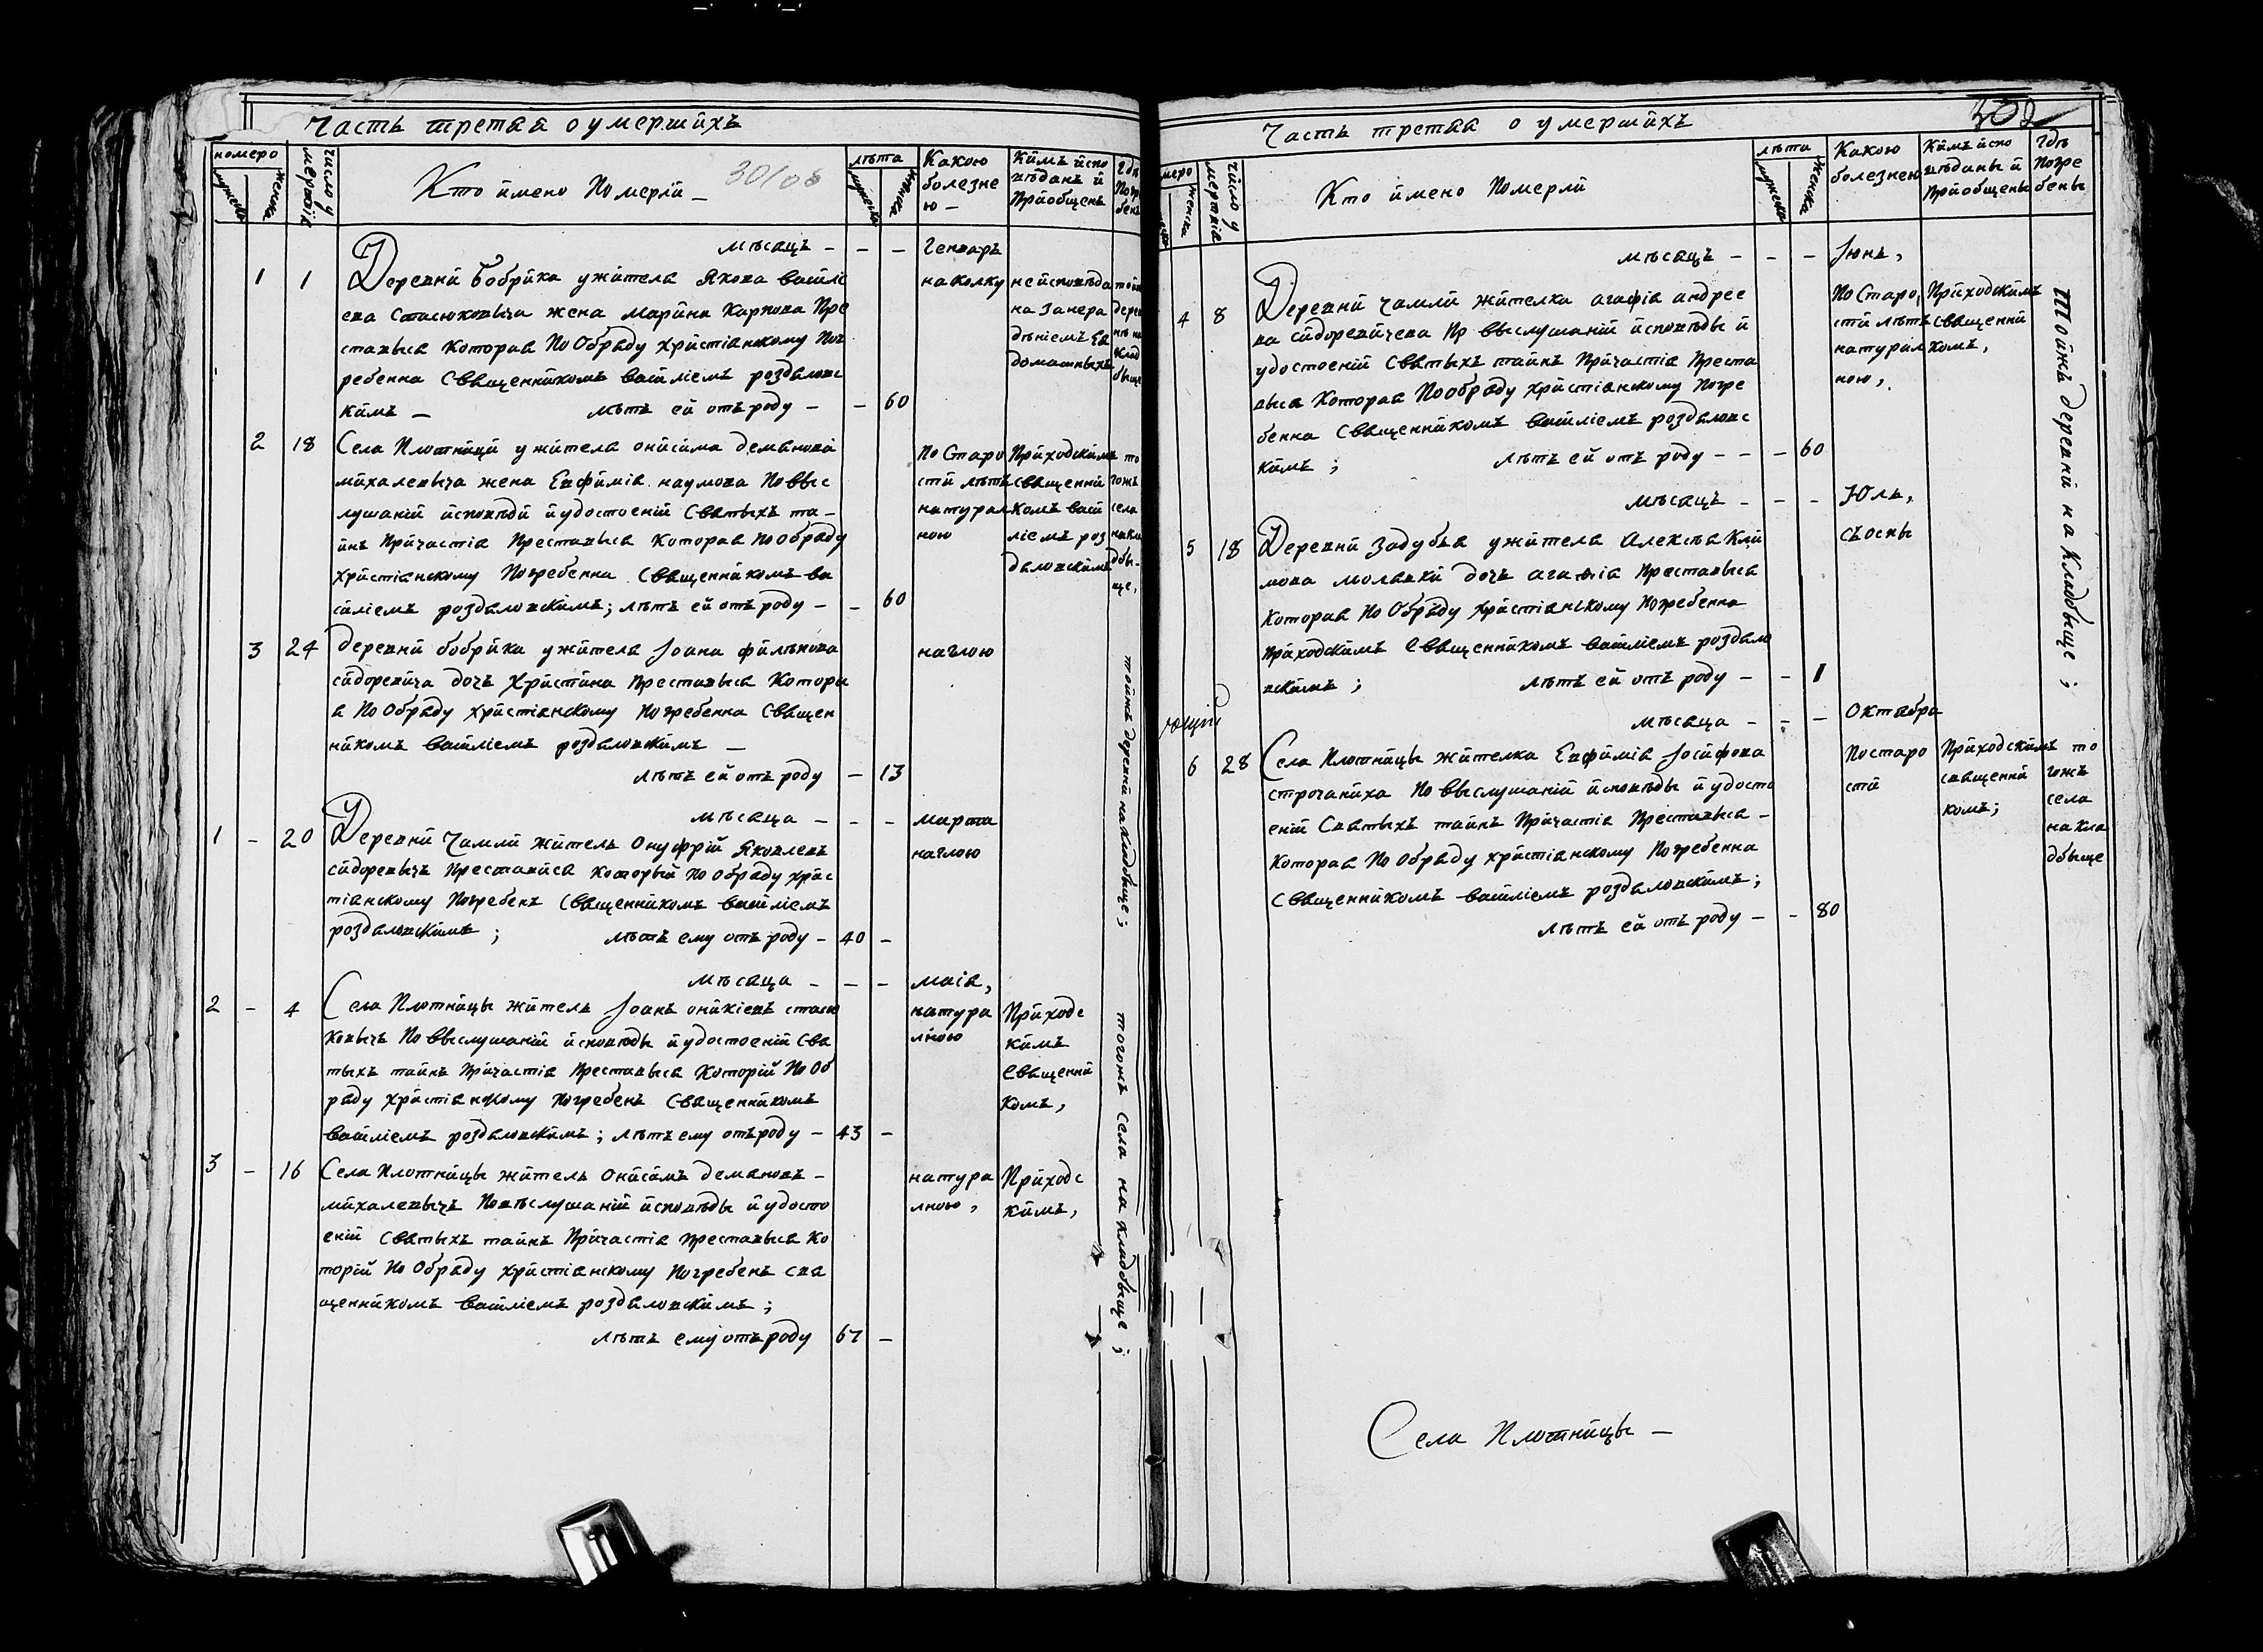 Часть третаа о умершихъ
номеро
мужеска
женска
число умертвія
Кто имено Померли –
30/06
лѣта
мужеска
женска
Какою
болезне
ю –
Кимъ испо
вѣданъ й
Прйобщенъ
Гдѣ
Погр
бенъ
мѣсацъ – – – Генваръ
1 1 Деревнй бобрйка ужйтела Якова васйлі
ева Стасюковыча жена Марйна Карпова Пре
ставыса котораа По Обраду Хрйстіанскому Пог
ребенна Сващеннйкомъ васйліемъ роздаловс
кймъ – лѣтъ ей отъ роду – – 60
наколку
нейсповѣда
на Занера
дѣніемъ Еа
домашныхъ
той
дерев
нѣ на
Клад
быще
2 18 Села Плотнйцй ужйтела онйсйма деманова
мйхалевыча жена Евфймія наумова По выс
лушаній йсповѣдй йудостоеній Сватыхъ та–
йнъ Прйчастіа Преставыса Котораа По обраду
хрйстіанскому Погребенна Сващеннйкомъ ва
сйліемъ роздаловскймъ; лѣтъ ей отъ роду – – 60
По Старо
стй лѣтъ
натурал
ною
Прйходскймъ
сващеннй
комъ васй
ліемъ роз
даловскймъ
то
гожъ
села
накла
дбы–
ще,
3 24 деревнй бобрйка ужйтела Іоана фйлѣпова
сйдоревйча дочъ Хрйстйна Преставыса Котора
а По Обраду хрйстіанскому Погребенна Сващен
нйкомъ васйліемъ роздаловскймъ –
лѣтъ ей отъ роду – 13
наглою
тойжъ деревнй на кладбыще;
мѣсаца – – – марта
1 – 20 Деревнй Чамлй жйтель Онуфрій Яковлевъ
сйдоревычъ Преставйса который по обраду хрйс
тіанскому Погребенъ Сващеннйкомъ васйліемъ
роздаловскймъ; лѣтъ ему отъ роду – 40 –
наглою
мѣсаца – – – маіа,
2 – 4 Села Плотнйцы жйтель Іоанъ онйкіевъ стасю
ковычъ По выслушаній йсповѣды йудостоеній Сва
тыхъ тайнъ Прйчастіа Преставыса Который По Об
раду хрйстіанскому погребенъ Сващеннйкомъ
васйліемъ роздаловскймъ; лѣтъ ему отъ роду – 43 –
натура
лною
Прйходс
кймъ
Сващеннй
комъ,
тогожъ села на кладбыще;
3 – 16 Села Плотнйцы жйтель Онйсймъ демановъ –
мйхалевычъ Повыслушаній йсповѣды йудосто
еній Сватыхъ тайнъ Прйчастіа преставыса Ко
торій По Обраду хрйстіанскому Погребенъ сва
щеннйкомъ васйліемъ роздаловскймъ;
лѣтъ ему отъ роду 67 –
натура
лною,
Прйходс
кймъ,
Часть третаа о умершйхъ
меро
женска
число умертвіа
Кто ймено Померлй
лѣта
мужеска
женска
Какою
болезнею
Кймъ йспо
вѣданы й
Прйобщены
Гдѣ
Погре
бены
мѣсацъ – – – Іюнъ,
4 8 Деревнй Чамлй жйтелка агафіа андрее
ва сйдоревйчева Пр выслушаній йсповѣды й
удостоеній Сватыхъ тайнъ Прйчастіа Преста
выса Котораа По обраду хрйстіанскому Погре
бенна Сващеннйкомъ васйліемъ роздаловс
кймъ; лѣтъ ей отъ роду – – – 60
По Старо,
стй лѣтъ
натурал
ною,
Прйходскймъ
сващеннй
комъ,
Тойжъ деревнй на Кладбыще;
мѣсацъ – – – Юль,
5 18 Деревнй Задубъа ужйтела Алексѣа Клй
мова молавкй дочъ агафіа Преставыса
Котораа По Обраду хрйстіанскому Погребенна
Прйходскймъ Сващеннйкомъ васйліемъ роздало
вскймъ; лѣтъ ей отъ роду – – 1
съоспы
мѣсаца – – – Октабра
6 28 Села Плотнйцы жйтелка Евфйміа Іосйфова
строчанйха По выслушаній йсповѣды йудосто
еній Сватыхъ тайнъ Прйчастіа Преставыса –
Котораа По Обраду хрйстіанскому Погребенна
Сващеннйкомъ васйліемъ роздаловскймъ;
лѣтъ ей отъ роду – – 80
Постаро
стй
Прйходскймъ
сващеннй
комъ;
то
гожъ
села
накла
дбыще
Села Плотнйцы –